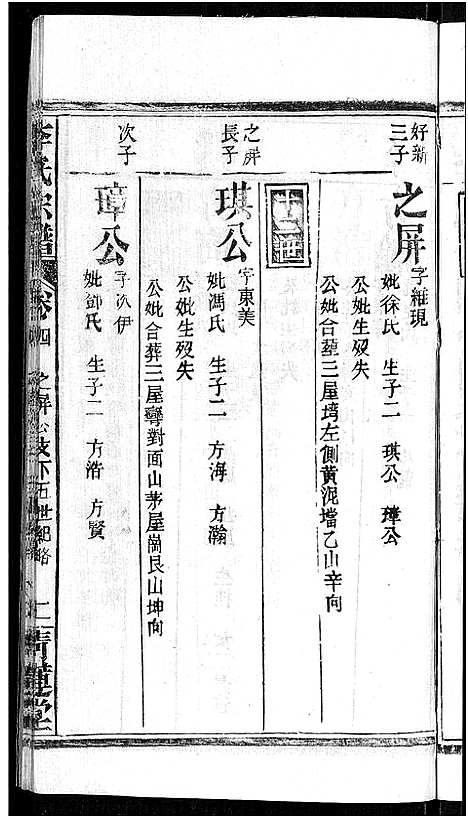 好新
三子
之屏
字維現
妣徐氏 生子二 琪公 璋公
公妣生歿失
公妣合葬三屋塆左側黃泥壋乙山辛向
十二世
之屏
長子
琪公
字東美
妣馮氏 生子二 方海 方瀚
公妣生歿失
公妣合葬三屋彎對面山茅屋崗艮山坤向
次子
璋公
字次伊
妣鄧氏 生子二 方浩 方賢
李氏宗譜
卷四
之屏公支下五世紀略
二
青蓮堂